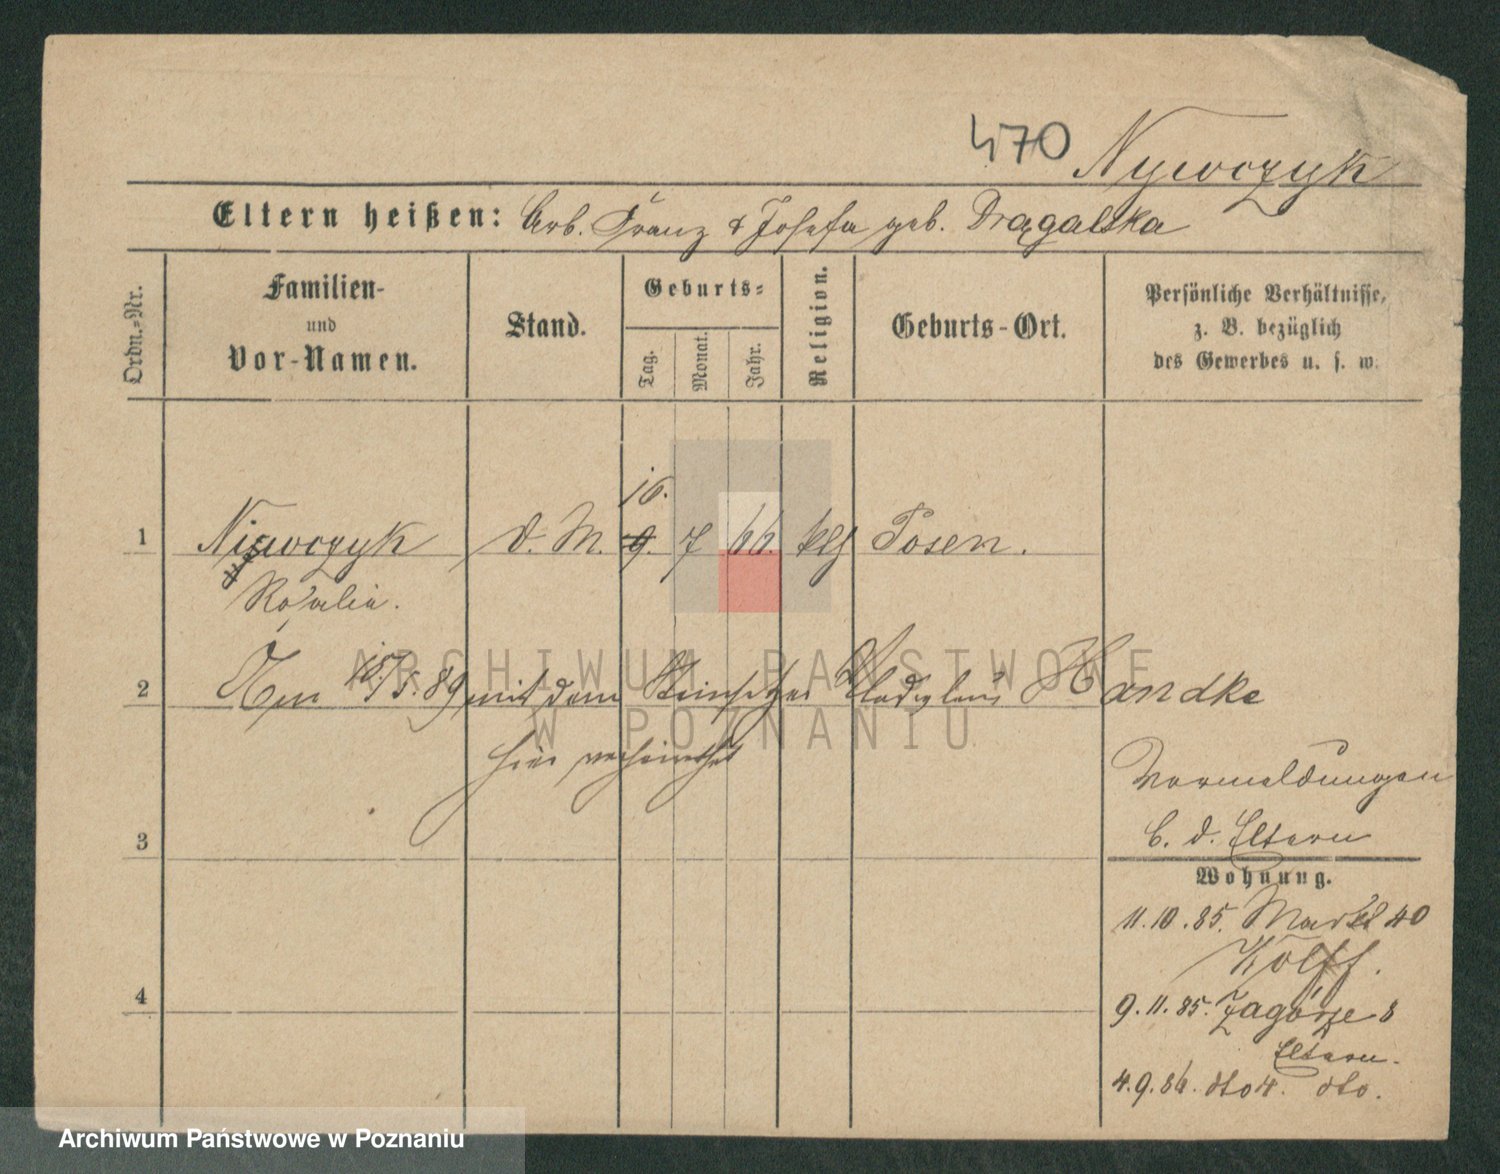 470 Nywczyk
Eltern heißen: Arb. Franz & Josefa geb. Drągalska
Ordn.-Nr.
Familien-
und
Vor-Namen.
Stand.
Geburts-
Tag.
Monat.
Jahr.
Religion.
Geburts-Ort.
Persönliche Verhältnisse,
z. B. bezüglich
des Gewerbes u. s. w.
16.
1 Niewczyk D. M. 9. 7 66. klj Posen.
Rosalia.
2 Am 18/5. 89 mit dem Steinsetzer Wladyslaus Handke
hier verheirathet
3
4
Vormeldungen
b. d. Eltern
Wohnung.
11.10.85. Markt 40
Wolff.
9.11.85. Zagórze 8
Eltern.
4.9.86. dto 4. dto.
ARCHIWUM PAŃSTWOWE
W POZNANIU
Archiwum Państwowe w Poznaniu